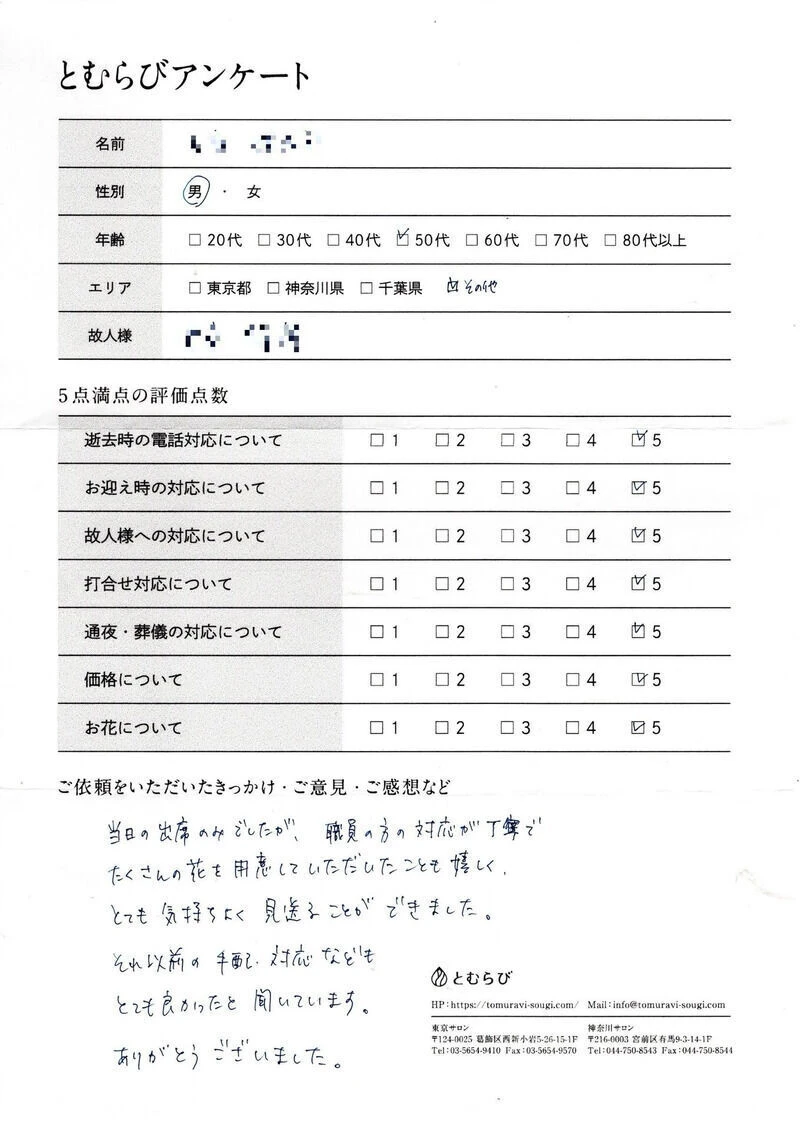 とむらびアンケート
名前
性別 男 ・ 女
年齢 □ 20代 □ 30代 □ 40代 ☑ 50代 □ 60代 □ 70代 □ 80代以上
エリア □ 東京都 □ 神奈川県 □ 千葉県 ☑ その他
故人様
5点満点の評価点数
逝去時の電話対応について □ 1 □ 2 □ 3 □ 4 ☑ 5
お迎え時の対応について □ 1 □ 2 □ 3 □ 4 ☑ 5
故人様への対応について □ 1 □ 2 □ 3 □ 4 ☑ 5
打合せ対応について □ 1 □ 2 □ 3 □ 4 ☑ 5
通夜・葬儀の対応について □ 1 □ 2 □ 3 □ 4 ☑ 5
価格について □ 1 □ 2 □ 3 □ 4 ☑ 5
お花について □ 1 □ 2 □ 3 □ 4 ☑ 5
ご依頼をいただいたきっかけ・ご意見・ご感想など
当日の出席のみでしたが、職員の方の対応が丁寧で
たくさんの花を用意していただいたことも嬉しく、
とても気持ちよく見送ることができました。
それ以前の手配、対応なども
とても良かったと聞いています。
ありがとうございました。
とむらび
HP:https://tomuravi-sougi.com/ Mail:info@tomuravi-sougi.com
東京サロン
〒124-0025 葛飾区西新小岩5-26-15-1F
Tel:03-5654-9410 Fax:03-5654-9570
神奈川サロン
〒216-0003 宮前区有馬9-3-14-1F
Tel:044-750-8543 Fax:044-750-8544